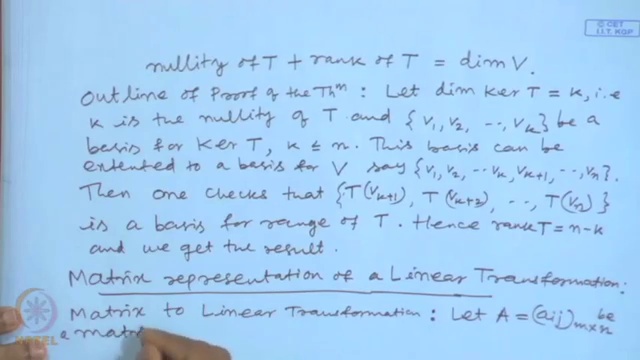 © CET
I.I.T. KGP
nullity of T + rank of T = dim V.
Outline of Proof of the Thm : Let dim ker T = k, i.e
k is the nullity of T and {v1, v2, .., vk} be a
basis for Ker T, k ≤ n. This basis can be
extented to a basis for V say {v1, v2, .. vk, vk+1, .., vn}.
Then one checks that {T(vk+1), T(vk+2), .., T(vn)}
is a basis for range of T. Hence rank T = n-k
and we get the result.
Matrix representation of a Linear Transformation:
Matrix to Linear Transformation : Let A = (aij)m×n be
a matri
NPTEL